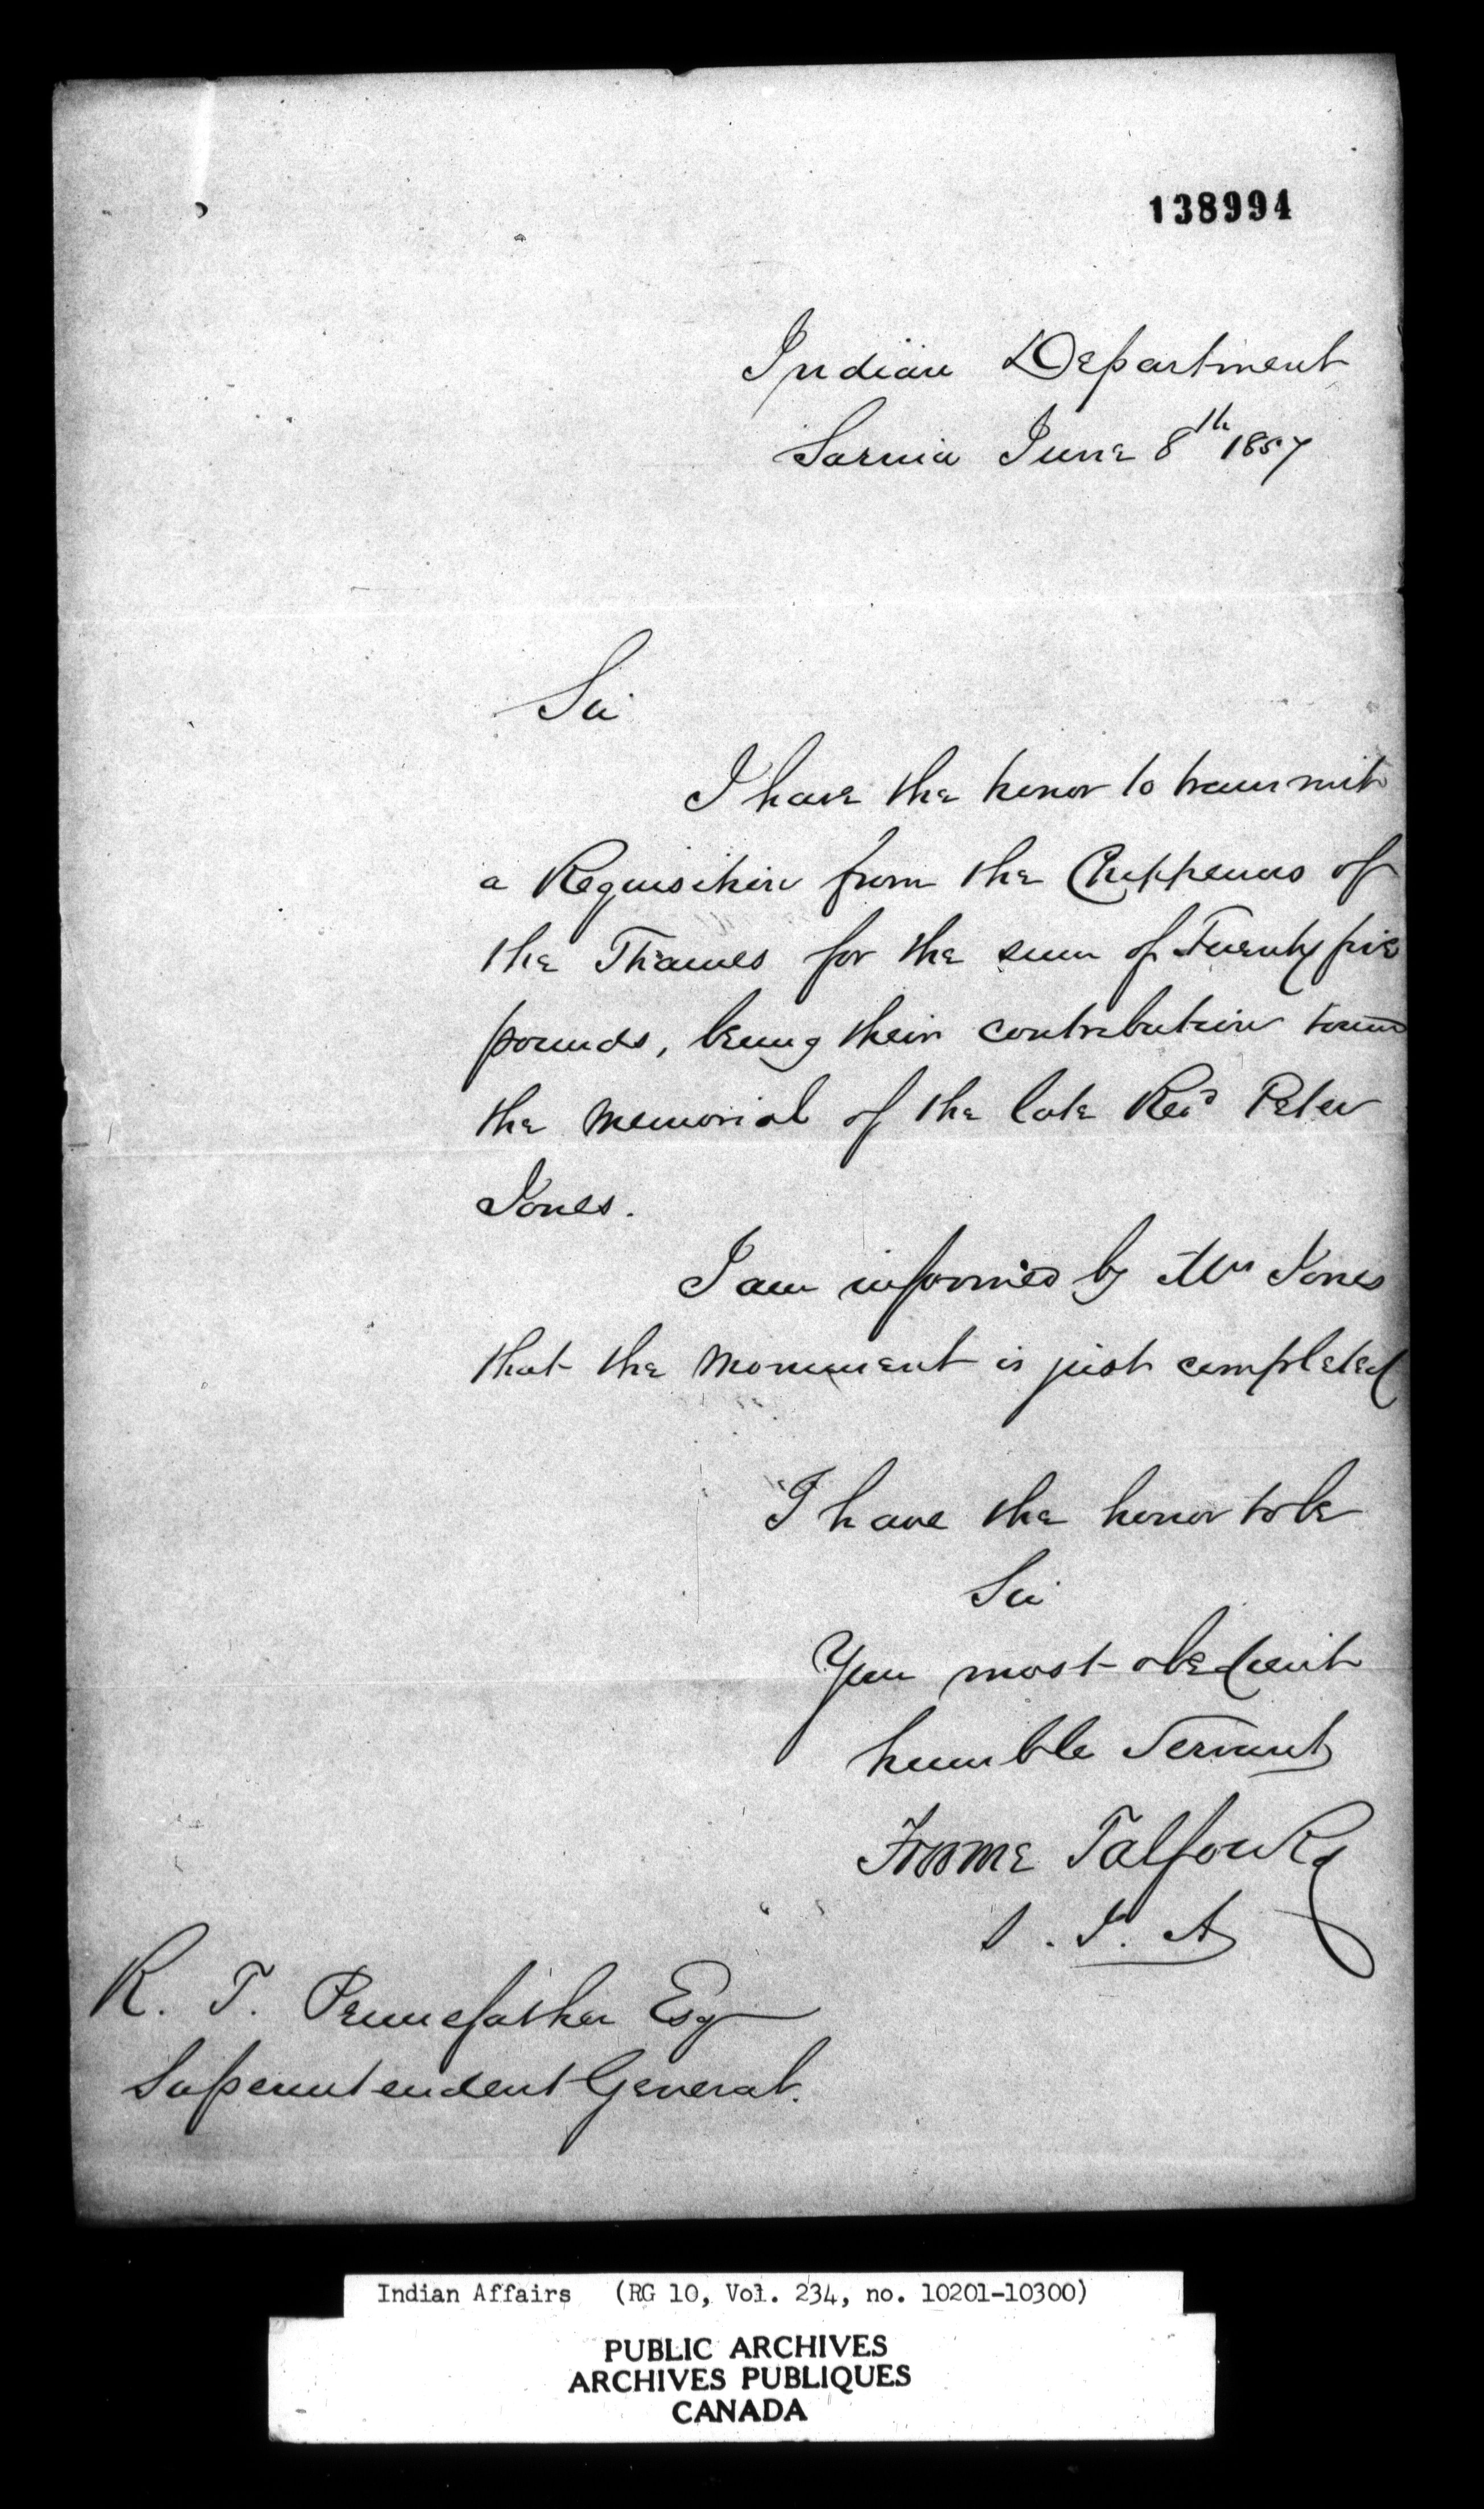 138994
Indian Department
Sarnia June 8th 1857
Sir
I have the honor to transmit
a Requisition from the Chippewas of
the Thames for the sum of Twenty five
pounds, being their contribution toward
the memorial of the late Revd Peter
Jones.
I am informed by Mrs Jones
that the monument is just completed
I have the honor to be
Sir
Your most obedient
humble Servant
Froome Talfourd
S. I. A
R. T. Pennefather Esq
Superintendent General.
Indian Affairs (RG 10, Vol. 234, no. 10201-10300)
PUBLIC ARCHIVES
ARCHIVES PUBLIQUES
CANADA